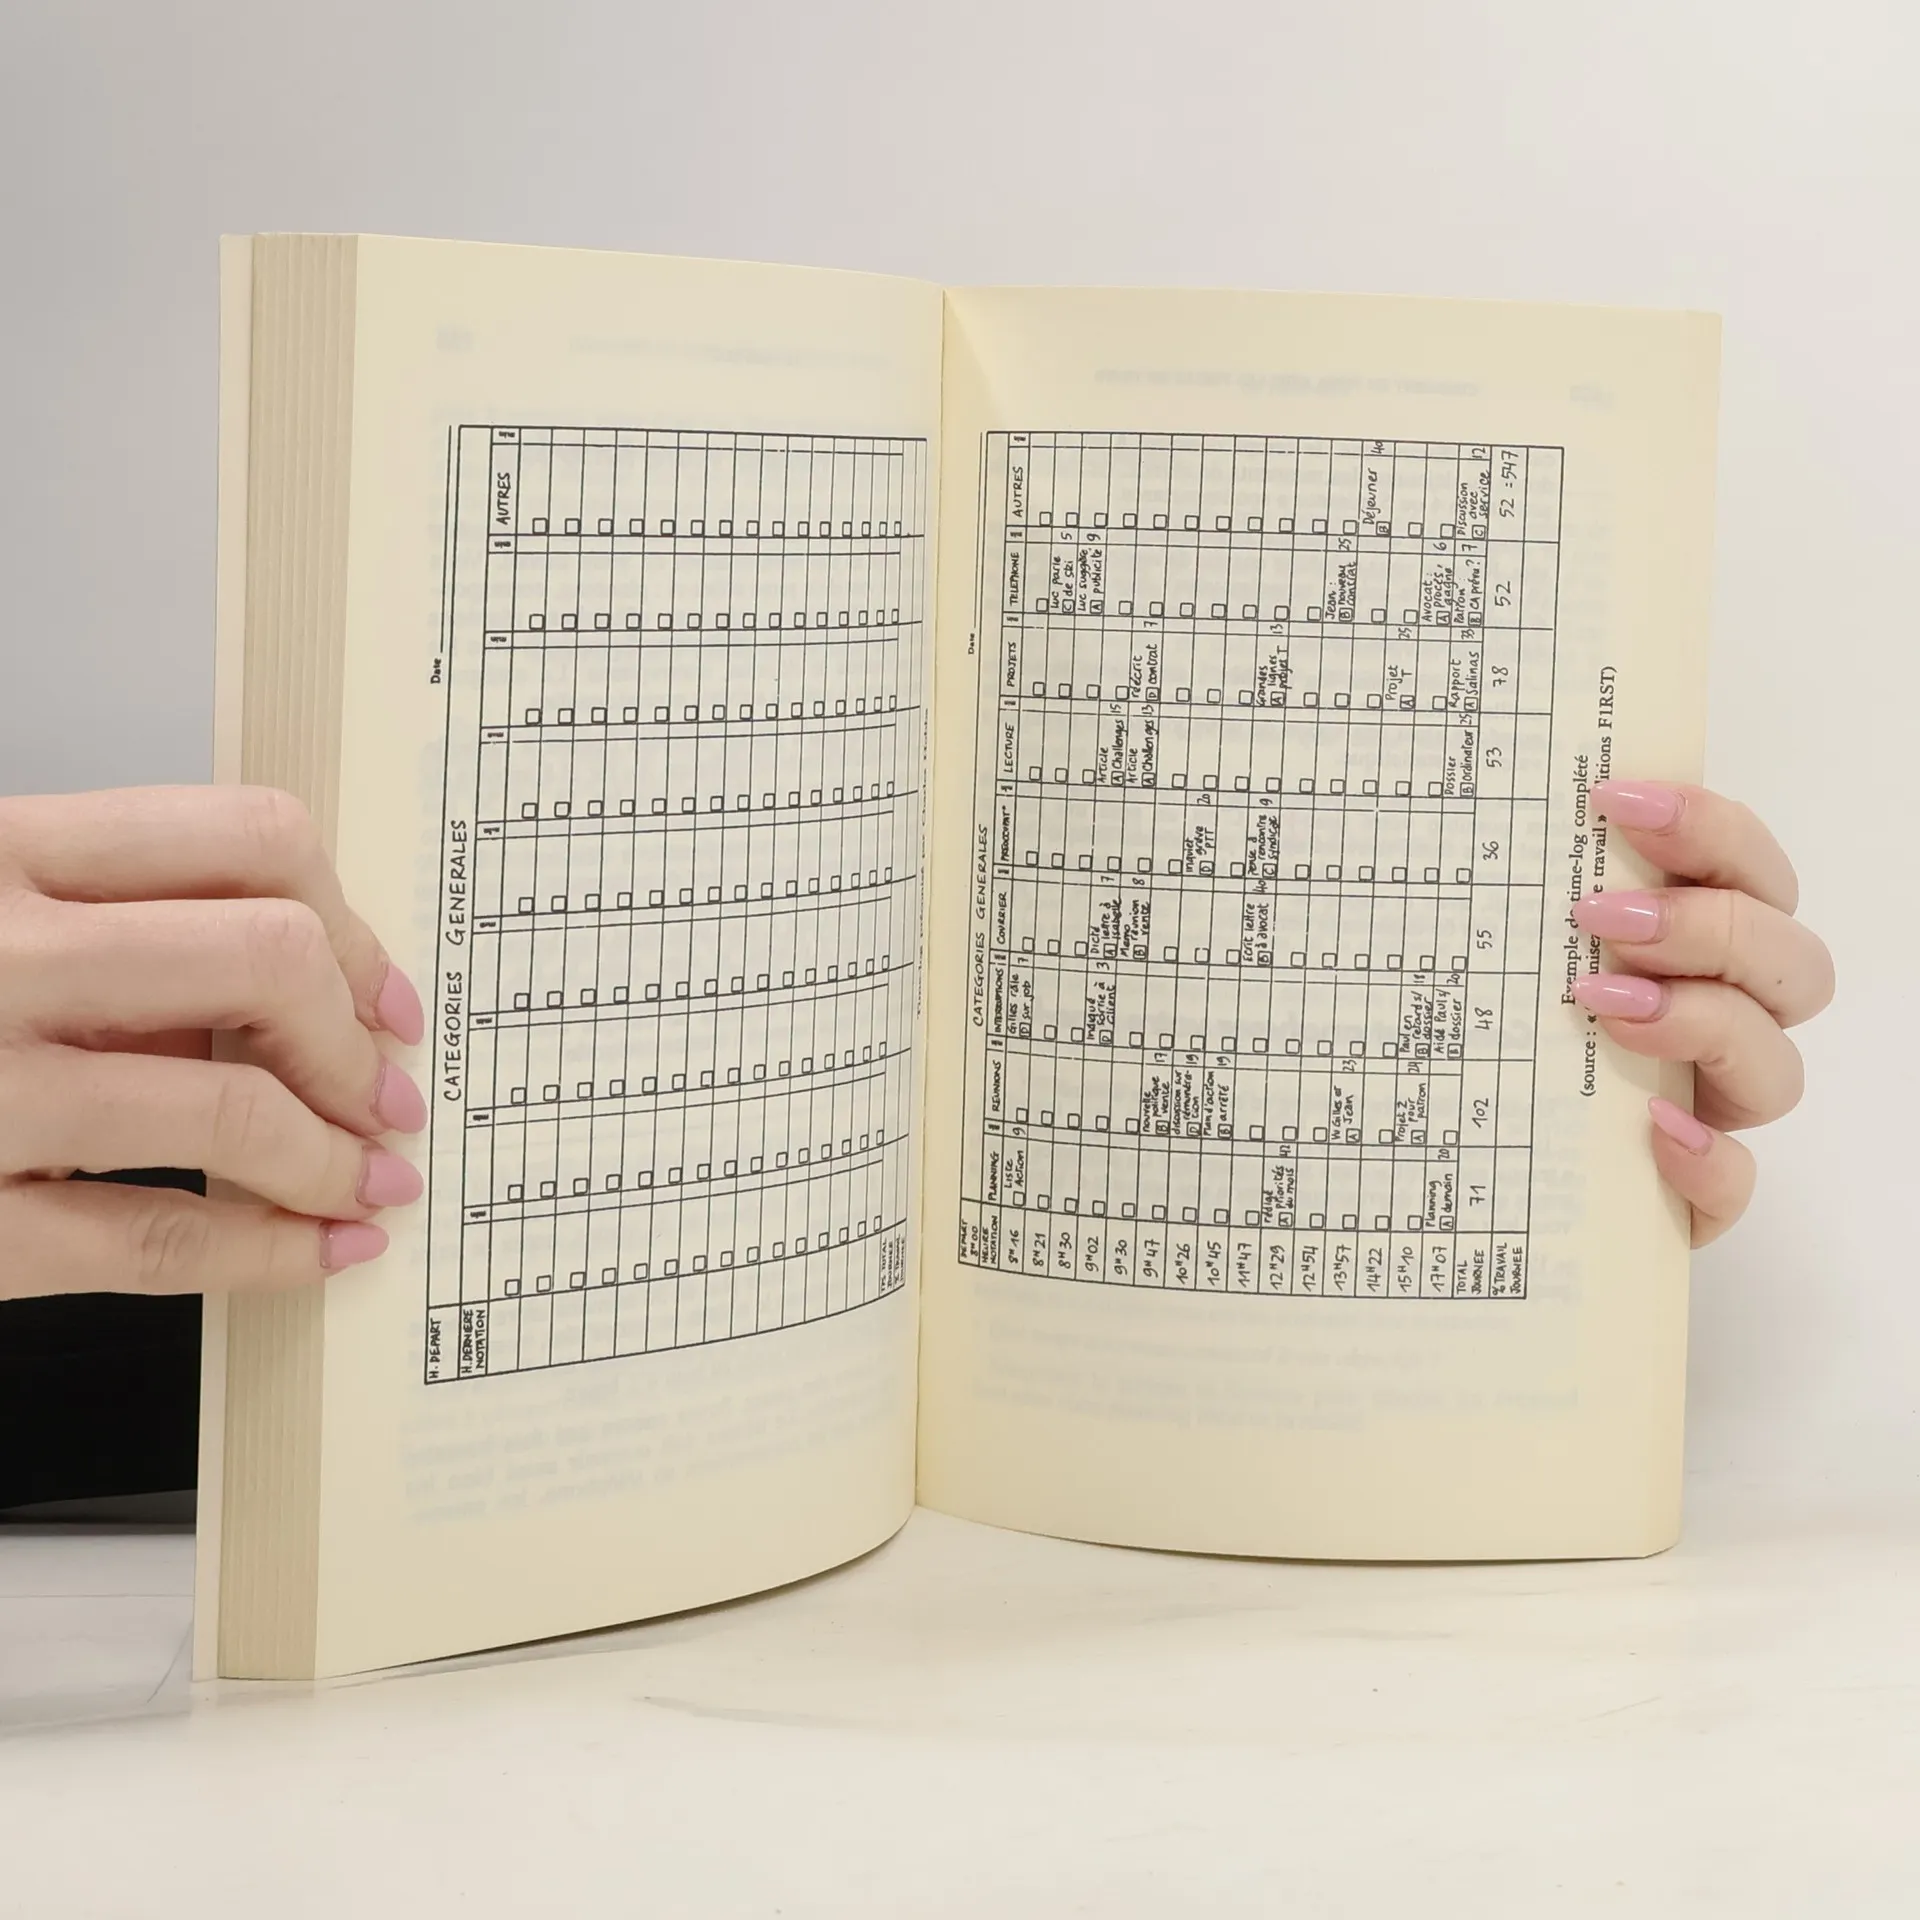 Date
CATEGORIES GENERALES
H. DEPART
H. DERNIERE NOTATION
AUTRES
Date
CATEGORIES GENERALES
DEPART 8H00
HEURE NOTATION PLANNING REUNIONS INTERRUPTIONS COURRIER LECTURE PROJETS TELEPHONE AUTRES
8H16 Liste Action 9 Gilles râle D sur job 7
8H21 Luc parle C de ski 5
8H30 Luc suggère A publicité 9
9H02 Indiqué D sortie à client 3 Dicté A lettre à Isabelle 7 Article A Challenges 15
9H30 Memo B réunion vente 8 Article A Challenges 13 réécrit D contrat 7
9H47 nouvelle B politique vente 17
10H26 discussion sur D rémunération 19 inquiet D grève PTT 20
10H45 Plan d'action B arrêté 19
11H47 Ecrit lettre B à avocat 40 Pense à C rencontre syndicat 9 Grandes A lignes projet T 13
12H29 rédigé A priorités du mois 42
12H54 Jean: B nouveau contrat 25
13H57 W Gilles et A Jean 23 Déjeuner B 40
14H22 Projet A T 25
15H10 Projet 2 A pour patron 24 Paul en B retard s/ dossier 18 Avocat: A procès gagné 6
17H07 Planning A demain 20 Aidé Paul s/ B dossier 20 Dossier B ordinateur 25 Rapport A Salinas 33 Patron: B CA prévu? 7 Discussion C avec service 12
TOTAL JOURNEE 71 102 48 55 36 53 78 52 52 =547
% TRAVAIL JOURNEE
Exemple de time-log complété
(source : « travail » itions FIRST)